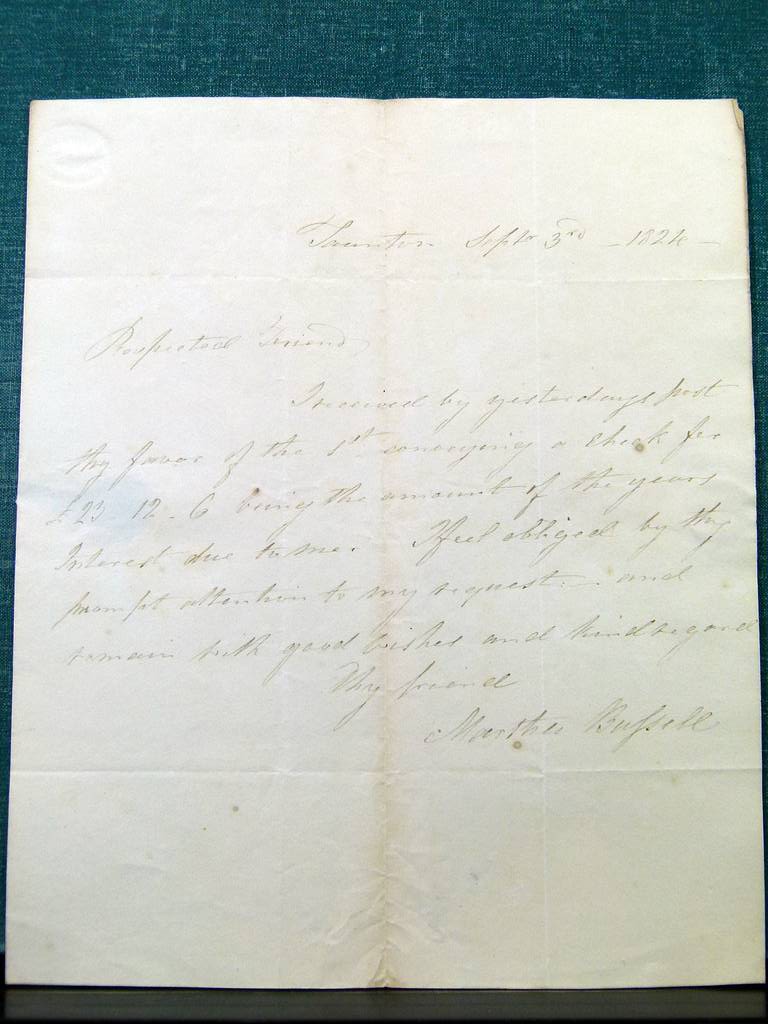 Taunton Septr 3rd - 1824 -
Respected Friend
I received by yesterdays post
thy favor of the 1st conveying a check for
£23 - 12 - 6 being the amount of the years
Interest due to me. I feel obliged by thy
prompt attention to my request - and
remain with good wishes and kind regard
Thy friend
Martha Bufsell